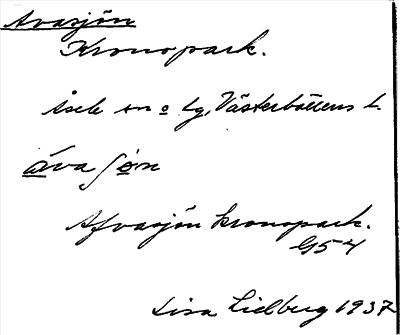 Avasjön
Kronopark.
Åsele sn o lg, Västerbottens l.
àva ʃøn
Afvasjön kronopark.
G54
Lisa Lidberg 1937